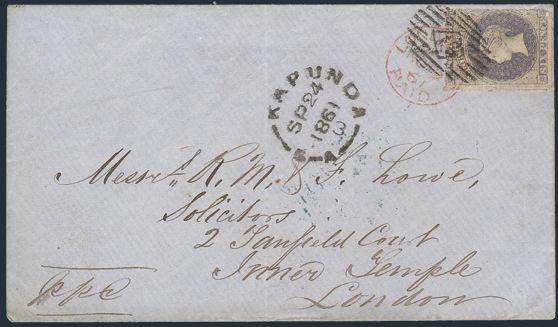 LONDON
67
PAID
KAPUNDA
SP 24
1861
S A
Messrs. R. M. & F. Lowe,
Solicitors
2 Tanfield Court
Inner Temple
London